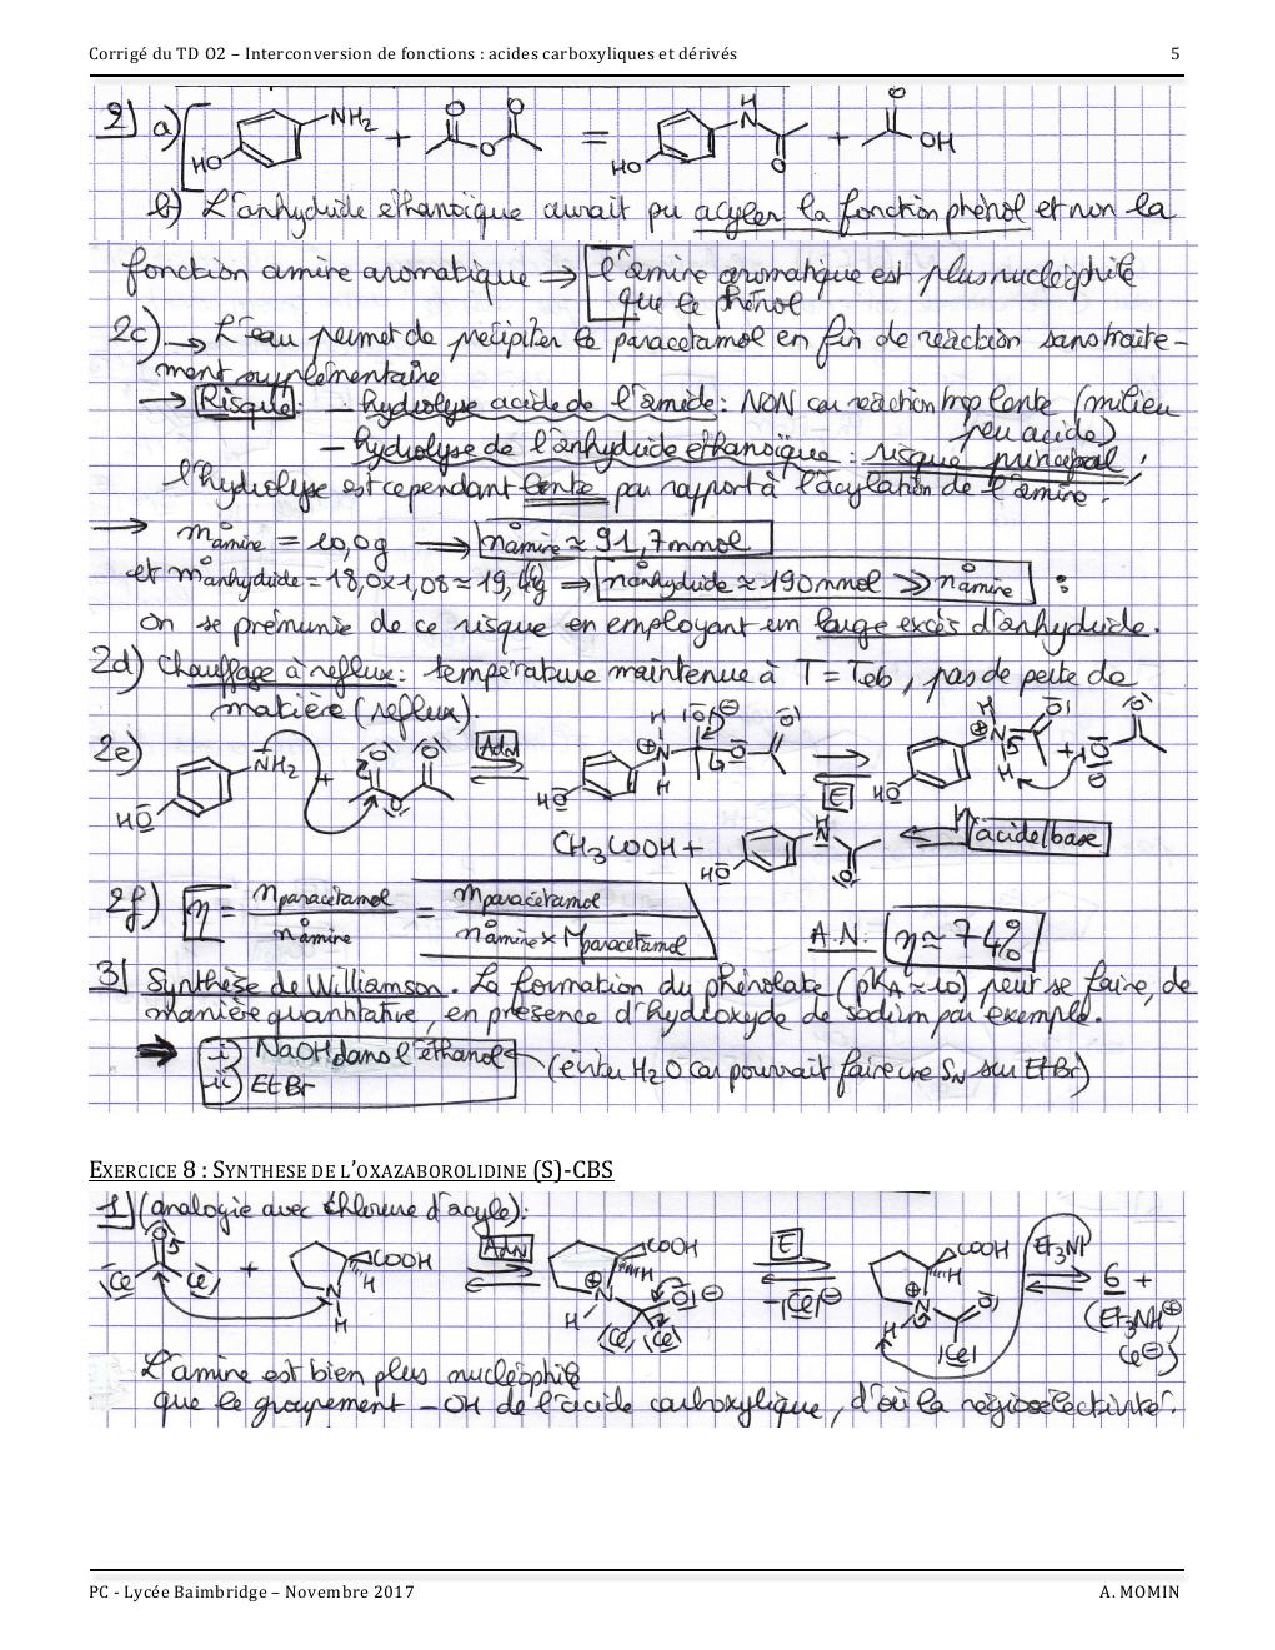 Corrigé du TD O2 – Interconversion de fonctions : acides carboxyliques et dérivés 5
2) a) HO NH2 + O O O = HO H N O + O OH
b) L'anhydride éthanoïque aurait pu acyler la fonction phénol et non la
fonction amine aromatique ⇒ l'amine aromatique est plus nucléophile
que le phénol
2c) → L'eau permet de précipiter le paracétamol en fin de réaction sans traite-
ment supplémentaire
→ Risque : – hydrolyse acide de l'amide : NON car réaction trop lente (milieu
peu acide)
– hydrolyse de l'anhydride éthanoïque : risque principal,
l'hydrolyse est cependant lente par rapport à l'acylation de l'amine.
→ m°amine = 10,0g → n°amine ≈ 91,7 mmol
et m°anhydride = 18,0x1,08 ≈ 19,4g ⇒ n°anhydride ≈ 190 mmol >> n°amine :
on se prémunie de ce risque en employant un large excès d'anhydride.
2d) Chauffage à reflux : température maintenue à T = Teb, pas de perte de
matière (reflux).
2e) HO NH2 + O O O AdN HO ⊕N H H IOI⊖ O O E HO ⊕N H H O + O O ⊖
CH3COOH + HO H N O acide/base
2f) η = nparacétamol / n°amine = mparacétamol / n°amine x Mparacétamol A.N: η ≃ 74%
3) Synthèse de Williamson. La formation du phénolate (pKA ≈ 10) peut se faire, de
manière quantitative, en présence d'hydroxyde de sodium par exemple.
⇒ i) NaOH dans l'éthanol (éviter H2O car pourrait faire une SN sur EtBr)
ii) EtBr
EXERCICE 8 : SYNTHESE DE L'OXAZABOROLIDINE (S)-CBS
1) (analogie avec chlorure d'acyle) :
O Cl Cl + COOH H N H AdN COOH H ⊕ N H O ⊖ Cl Cl E -|Cl|⊖ COOH H ⊕ N H O Cl Et3N 6 +
(Et3NH⊕,
Cl⊖)
L'amine est bien plus nucléophile
que le groupement –OH de l'acide carboxylique, d'où la régiosélectivité.
PC - Lycée Baimbridge – Novembre 2017 A. MOMIN